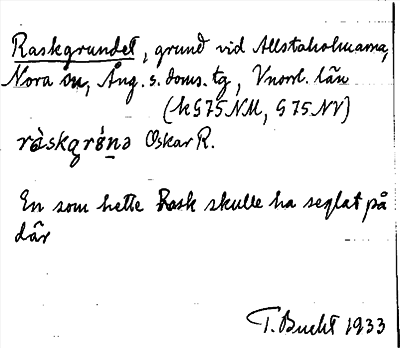 Raskgrundet, grund vid Allstaholmarna,
Nora sn, Ång. s. doms. tg, Vnorrl. län
(k G75 NM, G75 NV)
ràskgrúnə Oskar R.
En som hette Rask skulle ha seglat på
där
T. Bucht 1933